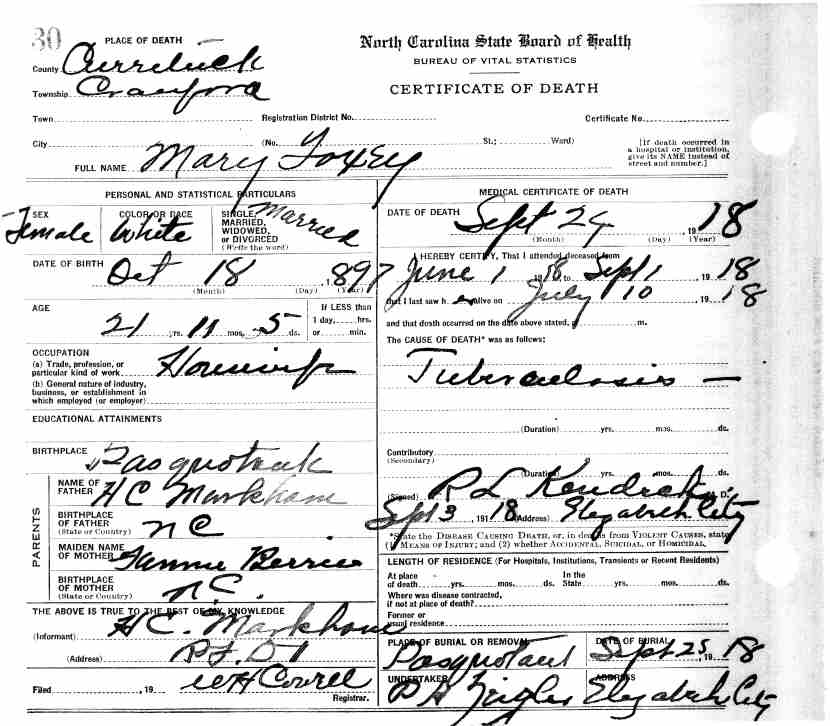 30
PLACE OF DEATH
North Carolina State Board of Health
BUREAU OF VITAL STATISTICS
CERTIFICATE OF DEATH
County Currituck
Township Crawford
Town Registration District No. Certificate No.
City (No. St.; Ward)
[If death occurred in a hospital or institution, give its NAME instead of street and number.]
FULL NAME Mary
PERSONAL AND STATISTICAL PARTICULARS
SEX Female
COLOR OR RACE White
SINGLE, MARRIED, WIDOWED, or DIVORCED (Write the word) Married
DATE OF BIRTH Oct 18, 1897
(Month) (Day) (Year)
AGE
21 yrs. 11 mos. 5 ds.
If LESS than 1 day, hrs. or min.
OCCUPATION
(a) Trade, profession, or particular kind of work Housewife
(b) General nature of industry, business, or establishment in which employed (or employer)
EDUCATIONAL ATTAINMENTS
BIRTHPLACE Pasquotank
PARENTS
NAME OF FATHER HC Markham
BIRTHPLACE OF FATHER (State or Country) NC
MAIDEN NAME OF MOTHER Fannie
BIRTHPLACE OF MOTHER (State or Country) N.C.
THE ABOVE IS TRUE TO THE BEST OF MY KNOWLEDGE
(Informant) HC. Markham
(Address)
Filed , 19 Registrar.
MEDICAL CERTIFICATE OF DEATH
DATE OF DEATH Sept 24, 1918
(Month) (Day) (Year)
I HEREBY CERTIFY, That I attended deceased from
June 1 1918 to Sept 1, 1918
that I last saw h er alive on July 10, 1918
and that death occurred on the date above stated, m.
The CAUSE OF DEATH* was as follows:
Tuberculosis —
(Duration) yrs. mos. ds.
Contributory (Secondary)
(Duration) yrs. mos. ds.
(Signed) R L Kendrick, M. D.
Sept 3, 1918 (Address) Elizabeth City
*State the DISEASE CAUSING DEATH, or, in deaths from VIOLENT CAUSES, state (1) MEANS OF INJURY; and (2) whether ACCIDENTAL, SUICIDAL, or HOMICIDAL.
LENGTH OF RESIDENCE (For Hospitals, Institutions, Transients or Recent Residents)
At place of death yrs. mos. ds. In the State yrs. mos. ds.
Where was disease contracted, if not at place of death?
Former or usual residence
PLACE OF BURIAL OR REMOVAL Pasquotank
DATE OF BURIAL Sept 25, 1918
UNDERTAKER Zeigler
ADDRESS Elizabeth City